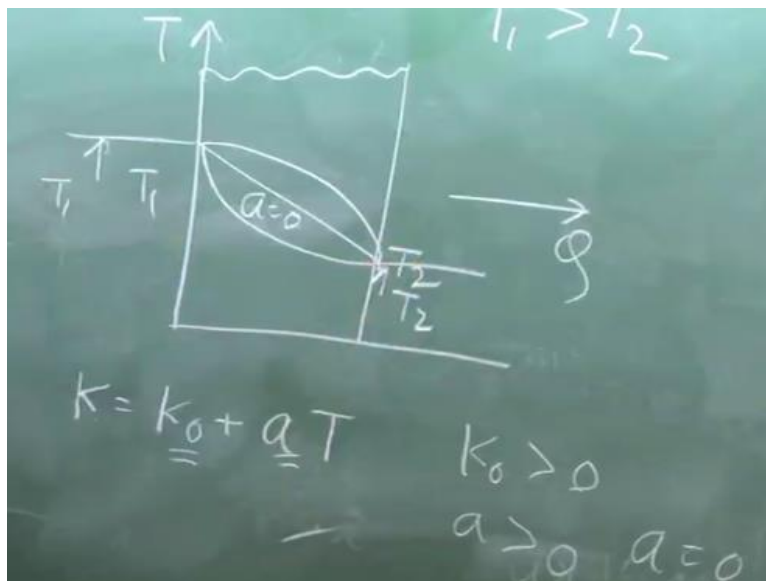 T
T₁ > T₂
T₁ T₁
a=0
T₂
T₂
q
K = k₀ + a T
k₀ > 0
a > 0 a = 0